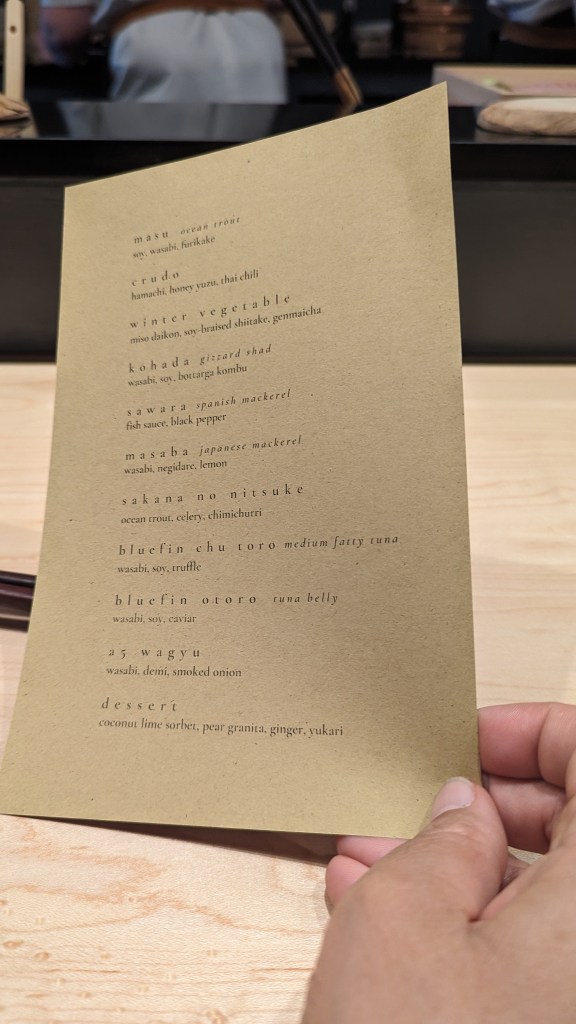 masu ocean trout
soy, wasabi, furikake
crudo
hamachi, honey yuzu, thai chili
winter vegetable
miso daikon, soy-braised shiitake, genmaicha
kohada gizzard shad
wasabi, soy, bottarga kombu
sawara spanish mackerel
fish sauce, black pepper
masaba japanese mackerel
wasabi, negidare, lemon
sakana no nitsuke
ocean trout, celery, chimichurri
bluefin chu toro medium fatty tuna
wasabi, soy, truffle
bluefin otoro tuna belly
wasabi, soy, caviar
a5 wagyu
wasabi, demi, smoked onion
dessert
coconut lime sorbet, pear granita, ginger, yukari